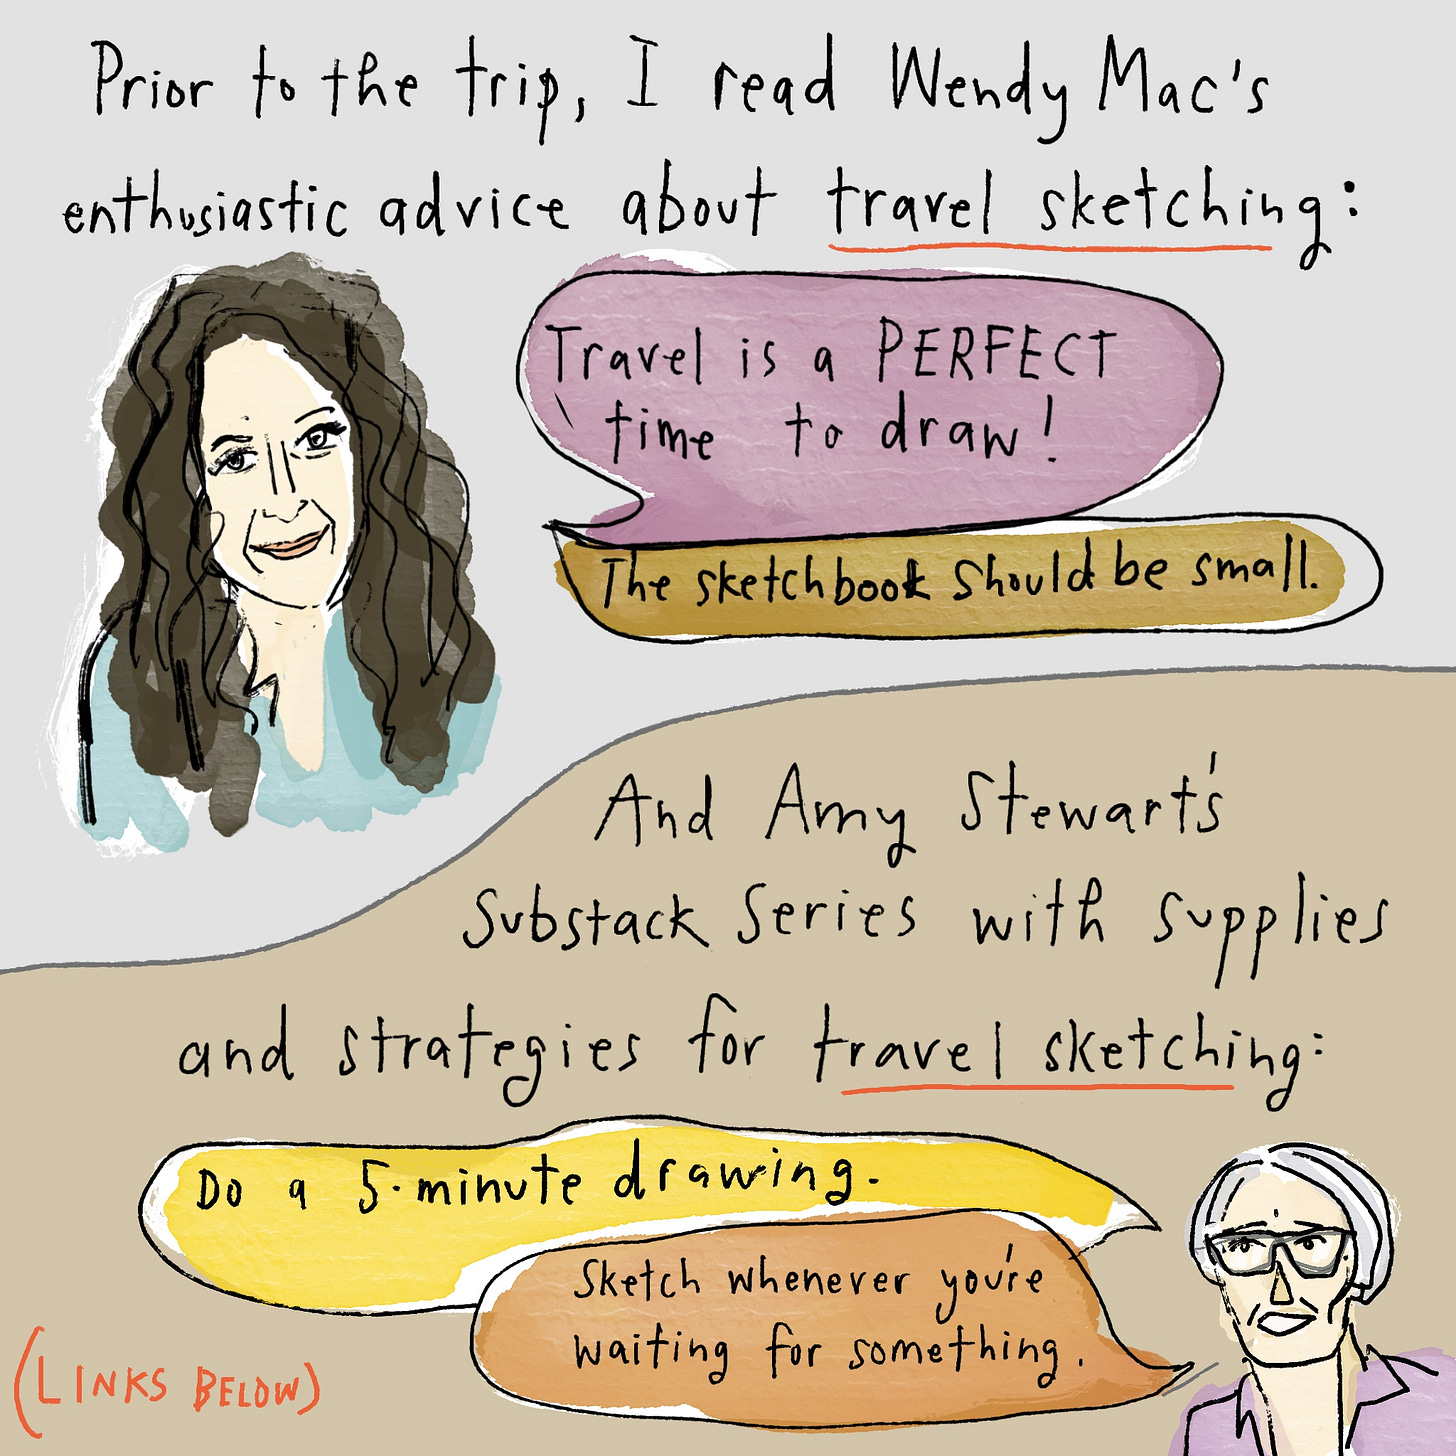 Prior to the trip, I read Wendy Mac's
enthusiastic advice about travel sketching:
Travel is a PERFECT
time to draw!
The sketchbook should be small.
And Amy Stewart's
Substack Series with supplies
and strategies for travel sketching:
Do a 5-minute drawing.
Sketch whenever you're
waiting for something.
(LINKS BELOW)